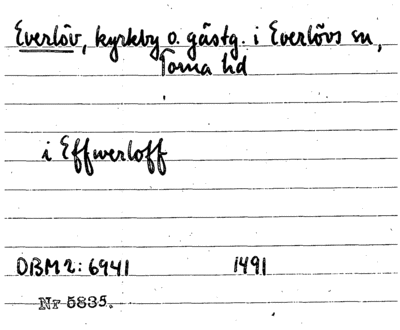 Everlöv, kyrkby o. gästg. i Everlövs sn,
Torna hd
i Effwerloff
DBM 2: 6941 1491
Nr 5835.